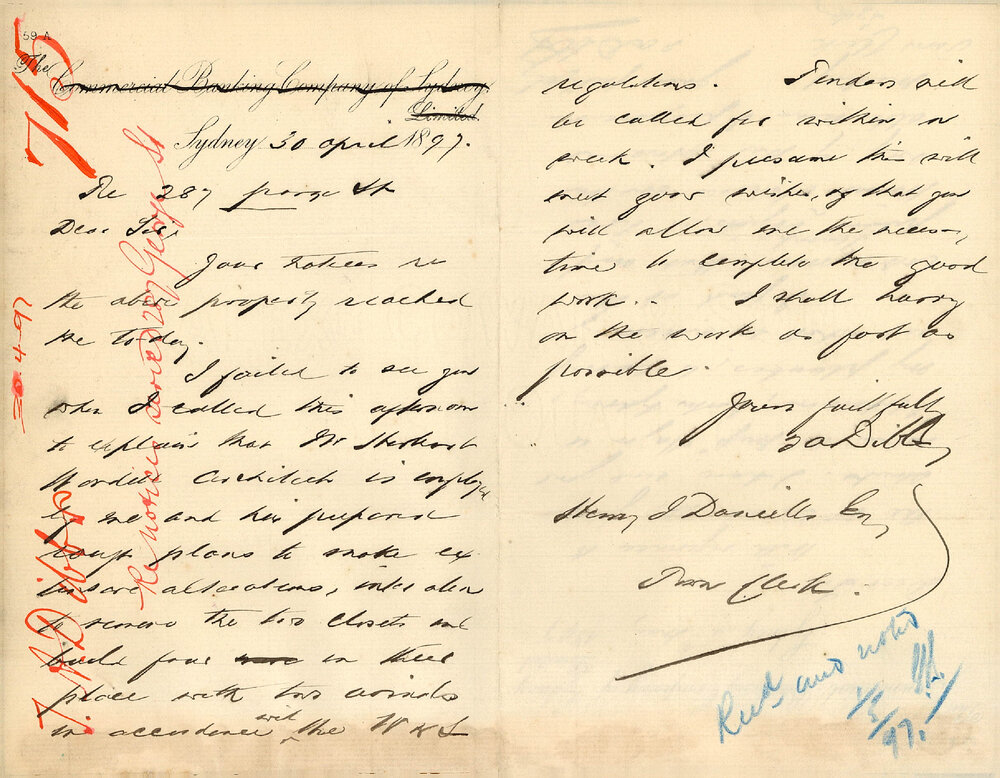 59 A
The
Commercial Banking Company of Sydney
Limited.
Sydney 30 April 1897.
Re 287 George St
Dear Sir,
Your notices re
the above property reached
me today.
I failed to see you
when I called this afternoon
to explain that Mr Herbert
Wardell Architect is employed
by me and has prepared
rough plans to make ex
tensive alterations, inter alia
to remove the two closets and
build four in their
place with two urinals
in accordance with the W & S
regulations. Tenders will
be called for within a
week. I presume this will
meet your wishes, & that you
will allow me the necess,
time to complete the good
work.. I shall hurry
on the work as fast as
possible.
Yours faithfully
T A Dibbs
Henry J Daniells Esq
Town Clerk.
7/5
T. A. Dibbs
Re notices served 287 George St
30 4 97
Recd and noted
1/5/97.